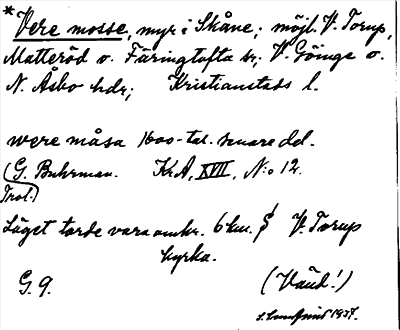 * Vere mosse, myr i Skåne; möjl. V. Torup,
Matteröd o. Färingtofta sr; V. Göinge o.
N. Åsbo hdr; Kristianstads l.
were måsa 1600-tal. senare del.
(G. Buhrman. KrA, XVII, N:o 12.
Trol.)
Läget torde vara omkr. 6 km. S V. Torup
kyrka.
G. 9. (Vänd!)
1937.